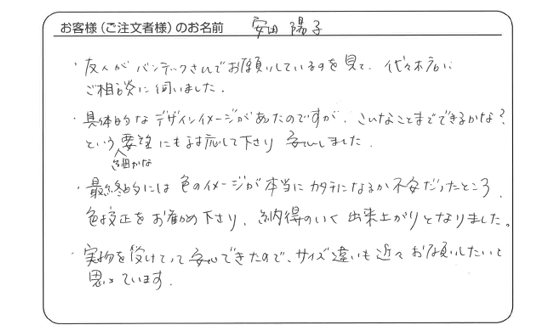 お客様(ご注文者様)のお名前 安田 陽子
・友人がバンテックさんでお願いしているのを見て、代々木店に
ご相談に伺いました。
・具体的なデザインイメージがあったのですが、こんなことまでできるかな?
という細かな要望にも対応して下さり 安心しました。
・最終的には色のイメージが本当にカタチになるか不安だったところ、
色校正をお勧め下さり、納得のいく出来上がりとなりました。
・実物を受けとって安心できたので、サイズ違いも近々お願いしたいと
思っています。